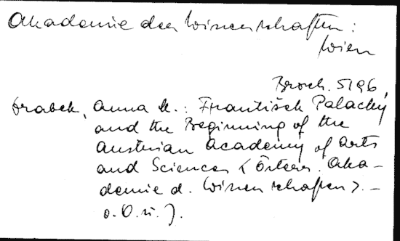 Akademie der Wissenschaften:
Wien
Broch. 5196
Drabek, Anna M.: František Palacký
and the Beginning of the
Austrian Academy of Arts
and Sciences <Österr. Aka-
demie d. Wissenschaften>. -
o. O. u. J.